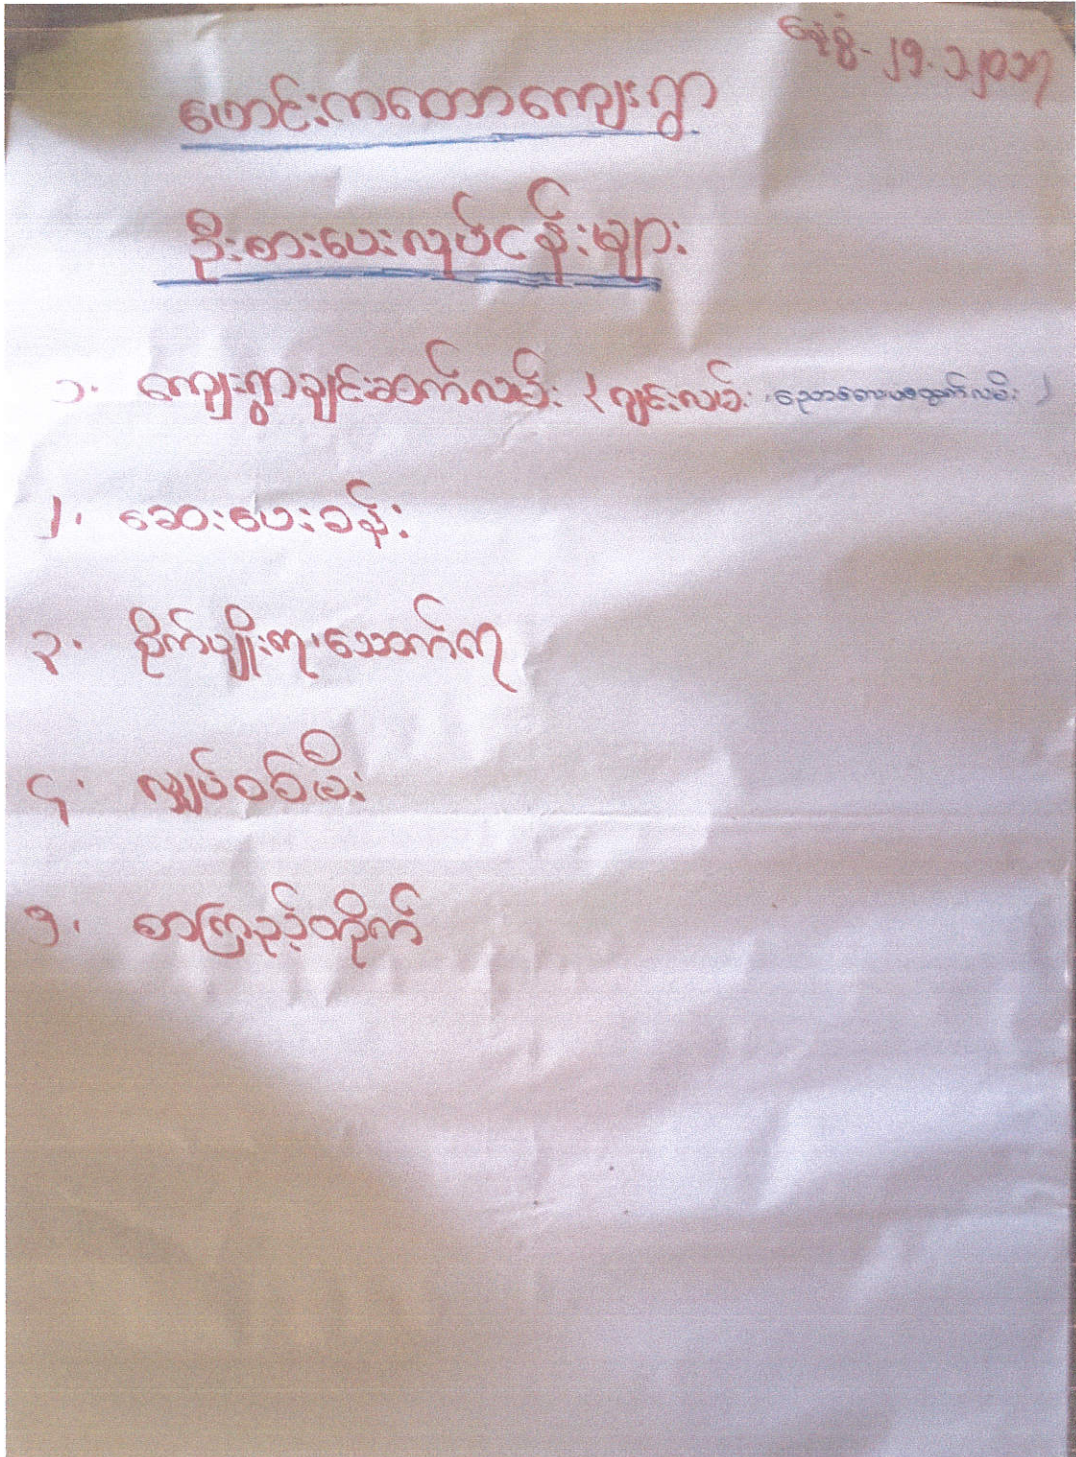 နေ့စွဲ - ၂၅.၁.၂၀၁၇
ဖောင်းကတောကျေးရွာ
ဦးစားပေးလုပ်ငန်းများ
၁. ကျေးရွာချင်းဆက်လမ်း (ဂျင်းလမ်း
၂. ဆေးပေးခန်း
၃. စိုက်ပျိုးရေ၊သောက်ရေ
၄. လျှပ်စစ်မီး
၅. စာကြည့်တိုက်